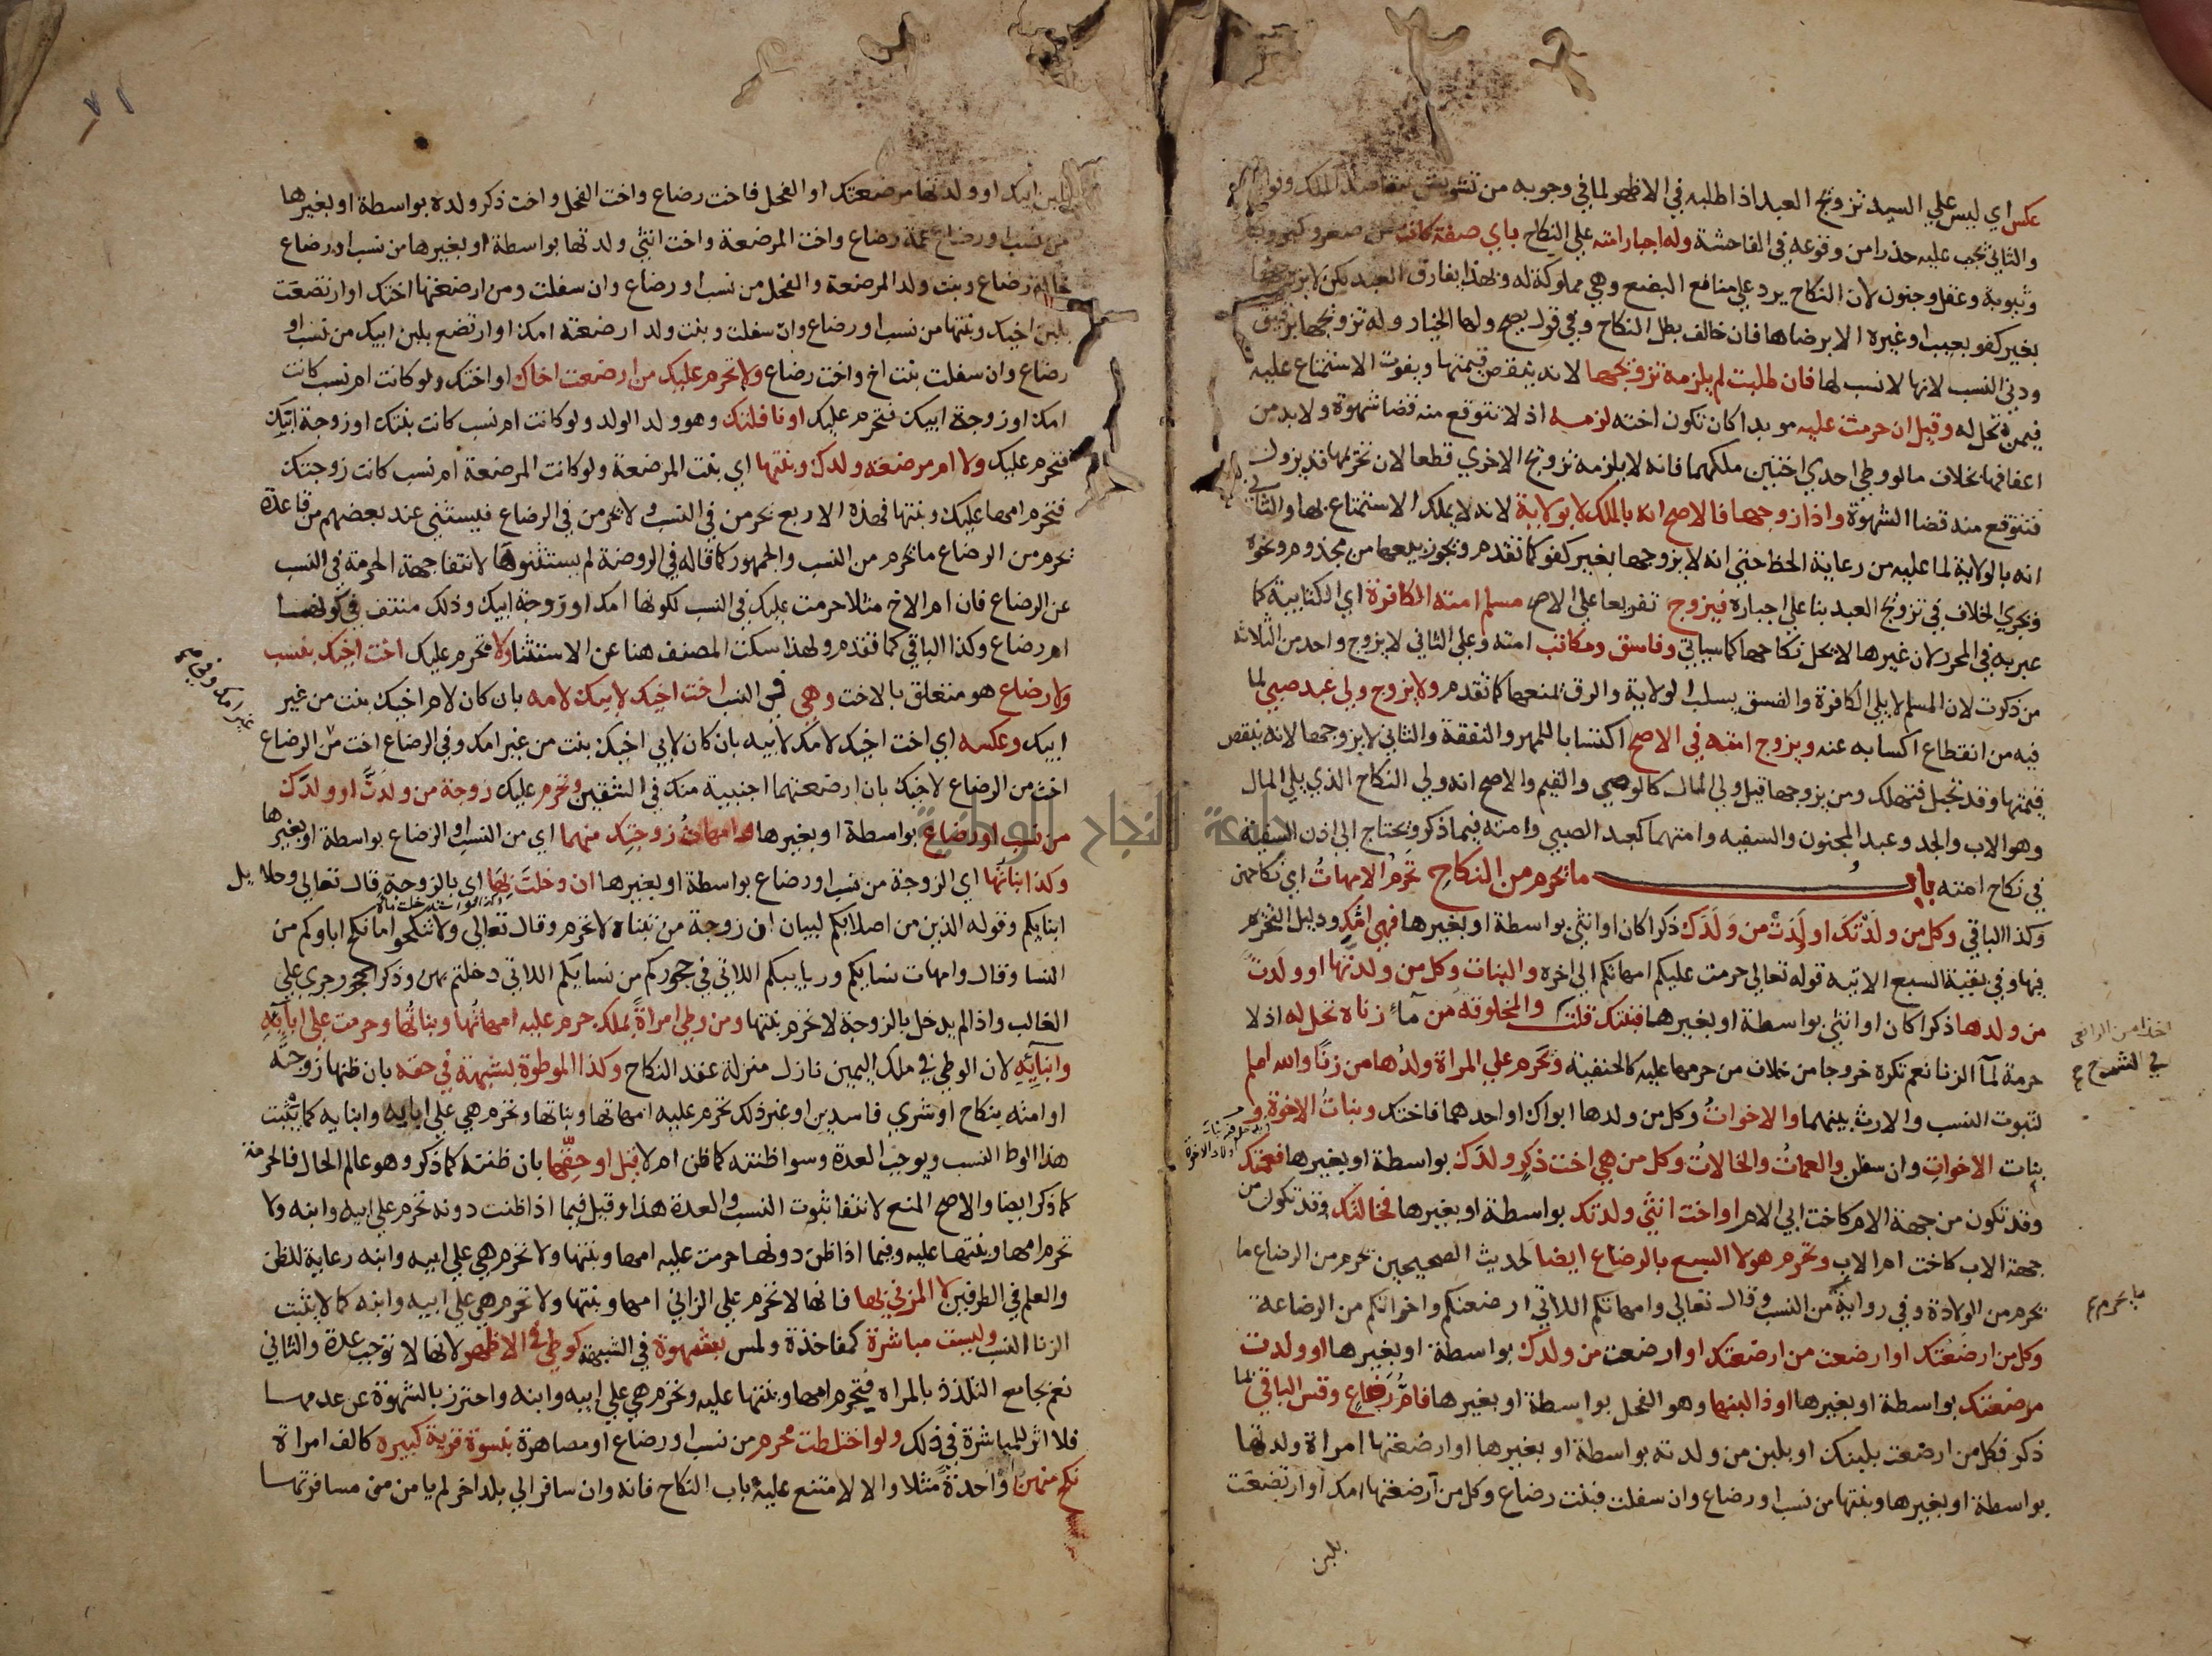 عكس اي ليس علي السيد تزويج العبد اذا طلبه في الاظهر لما في وجوبه من تشويش مقاصد الملك
والثاني يجب عليه حذرا من وقوعه في الفاحشة وله اجبار امته علي النكاح باي صفة كانت من صغر وكبر
وثيوبة وعقل وجنون لان النكاح يرد علي منافع البضع وهي مملوكة له وبهذا يفارق العبد لكن لا يزوجها
بغير كفو بعيب او غيره الا برضاها فان خالف بطل النكاح وفي قول يصح ولها الخيار وله تزويجها برقيق
ودني النسب لانها لا نسب لها فان طلبت لم يلزمه تزويجها لانه ينقص قيمتها ويفوت الاستمتاع عليه
فيمن تحل له وقيل ان حرمت عليه موبدا كان تكون اخته لزمه اذ لا تتوقع منه قضا شهوة ولا بد من
اعفافها بخلاف ما لو وطي احدي اختين ملكهما فانه لا يلزمه تزويج الاخري قطعا لان تحريمها قد يزول
فتتوقع منه قضا الشهوة واذا زوجها فالاصح انه بالملك لا بولاية لانه لا يملك الاستمتاع بها والثاني
انه بالولاية لما عليه من رعاية الحظ حتي انه لا يزوجها بغير كفو كما تقدم ويجوز بيعها من مجذوم ونحوه
ويجري الخلاف في تزويج العبد بنا علي اجباره فيزوج تفريعا علي الاصح مسلم امته الكافرة اي الكتابية كما
عبر به في المحرر لان غيرها لا يحل نكاحها كما سياتي وفاسق ومكاتب امته وعلي الثاني لا يزوج واحد من الثلاثة
من ذكرت لان المسلم لا يلي الكافرة والفسق يسلب الولاية والرق يمنعها كما تقدم ولا يزوج ولي عبد صبي لما
فيه من انقطاع اكسابه عنه ويزوج امته في الاصح اكتسابا للمهر والنفقة والثاني لا يزوجها لانه ينقص
قيمتها وقد تحبل فتهلك ومن يزوجها قيل ولي المال كالوصي والقيم والاصح انه ولي النكاح الذي يلي المال
وهو الاب والجد وعبد المجنون والسفيه وامتهما كعبد الصبي وامته فيما ذكر ويحتاج الي اذن السفيه
في نكاح امته باب ما يحرم من النكاح تحرم الامهات اي نكاحهن
وكذا الباقي وكل من ولدتك او لدت من ولدك ذكرا كان او انثي بواسطة او بغيرها فهي امك ودليل التحريم
فيها وفي بقية السبع الاتية قوله تعالي حرمت عليكم امهاتكم الي اخره والبنات وكل من ولدتها او ولدت
من ولدها ذكرا كان او انثي بواسطة او بغيرها فبنتك قلت والمخلوقة من ماء زناه تحل له اذ لا
حرمة لما الزنا نعم تكره خروجا من خلاف من حرمها عليه كالحنفية وتحرم علي المراة ولدها من زنا والله اعلم
لثبوت النسب والارث بينهما والاخوات وكل من ولدها ابواك او احدهما فاختك وبنات الاخوة و
بنات الاخوات وان سفلن والعمات والخالات وكل من هي اخت ذكر ولدك بواسطة او بغيرها فعمتك
وقد تكون من جهة الام كاخت ابي الام او اخت انثي ولدتك بواسطة او بغيرها فخالتك وقد تكون من
جهة الاب كاخت ام الاب وتحرم هولا السبع بالرضاع ايضا لحديث الصحيحين يحرم من الرضاع ما
يحرم من الولادة وفي رواية من النسب وقال تعالي وامهاتكم اللاتي ارضعنكم واخواتكم من الرضاعة
وكل من ارضعتك او ارضعت من ارضعتك او ارضعت من ولدك بواسطة او بغيرها او ولدت
مرضعتك بواسطة او بغيرها او ذا لبنها وهو الفحل بواسطة او بغيرها فام رضاع وقس الباقي بما
ذكر فكل من ارضعت بلبنك او بلبن من ولدته بواسطة او بغيرها او ارضعتها امراة ولدتها
بواسطة او بغيرها وبنتها من نسب او رضاع وان سفلت فبنت رضاع وكل من ارضعتها امك او ارتضعت
بلبن
اخذا من الرافعي
في الشرح
ما يحرم
بلبن ابيك او ولدتها مرضعتك او الفحل فاخت رضاع واخت الفحل واخت ذكر ولده بواسطة او بغيرها
من نسب او رضاع عمة رضاع واخت المرضعة واخت انثي ولدتها بواسطة او بغيرها من نسب او رضاع
خالة رضاع وبنت ولد المرضعة والفحل من نسب او رضاع وان سفلت ومن ارضعتها اختك او ارتضعت
بلبن اخيك وبنتها من نسب او رضاع وان سفلت وبنت ولد ارضعته امك او ارتضع بلبن ابيك من نسب او
رضاع وان سفلت بنت اخ واخت رضاع ولا تحرم عليك من ارضعت اخاك او اختك ولو كانت ام نسب كانت
امك او زوجة ابيك فتحرم عليك او نافلتك وهو ولد الولد ولو كانت ام نسب كانت بنتك او زوجة ابنك
فتحرم عليك ولا ام مرضعة ولدك وبنتها اي بنت المرضعة ولو كانت المرضعة ام نسب كانت زوجتك
فتحرم امها عليك وبنتها فهذه الاربع يحرمن في النسب ولا يحرمن في الرضاع فيستثني عند بعضهم من قاعدة
يحرم من الرضاع ما يحرم من النسب والجمهور كما قاله في الروضة لم يستثنوها لانتفا جهة الحرمة في النسب
عن الرضاع فان ام الاخ مثلا حرمت عليك في النسب لكونها امك او زوجة ابيك وذلك منتف في كونها
ام رضاع وكذا الباقي كما تقدم ولهذا سكت المصنف هنا عن الاستثنا ولا تحرم عليك اخت اخيك بنسب
ولا رضاع هو متعلق بالاخت وهي في النسب اخت اخيك لابيك لامه بان كان لام اخيك بنت من غير
ابيك وعكسه اي اخت اخيك لامك لابيه بان كان لابي اخيك بنت من غير امك وفي الرضاع اخت من الرضاع
اخت من الرضاع لاخيك بان ارضعتهما اجنبية منك في الشقين وتحرم عليك زوجة من ولدت او ولدك
من نسب او رضاع بواسطة او بغيرها وامهات زوجتك منهما اي من النسب او الرضاع بواسطة او بغيرها
وكذا بناتها اي الزوجة من نسب او رضاع بواسطة او بغيرها ان دخلت بها اي بالزوجة قال تعالي وحلايل
ابنايكم وقوله الذين من اصلابكم لبيان ان زوجة من تبناه لا تحرم وقال تعالي ولا تنكحوا ما نكح اباوكم من
النسا وقال وامهات نسايكم وربايبكم اللاتي في حجوركم من نسايكم اللاتي دخلتم بهن وذكر الحجور جري علي
الغالب واذا لم يدخل بالزوجة لا تحرم بنتها ومن وطي امراة بملك حرم عليه امهاتها وبناتها وحرمت علي ابايه
وابنايه لان الوطي في ملك اليمين نازل منزلة عقد النكاح وكذا الموطوة بشبهة في حقه بان ظنها زوجته
او امته بنكاح او شري فاسدين او غير ذلك تحرم عليه امهاتها وبناتها وتحرم هي علي ابايه وابنايه كما يثبت
هذا الوط النسب ويوجب العدة وسوا ظنته كما ظن ام لا قيل او حقها بان ظنته كما ذكر وهو عالم الحال فالحرمة
كما ذكر ايضا والاصح المنع لانتفا ثبوت النسب والعدة هذا وقيل فيما اذا ظنت دونه تحرم علي ابيه وابنه ولا
تحرم امها وبنتها عليه وفيما اذا ظن دونها حرمت عليه امها وبنتها ولا تحرم هي علي ابيه وابنه رعاية للظن
والعلم في الطرفين لا المزني بها فانها لا تحرم علي الزاني امها وبنتها ولا تحرم هي علي ابيه وابنه كما لا يثبت
الزنا النسب وليست مباشرة كمفاخذة ولمس بشهوة في الشبهة كوطي في الاظهر لانها لا توجب عدة والثاني
نعم بجامع التلذذ بالمراه فتحرم امها وبنتها عليه وتحرم هي علي ابيه وابنه واحترز بالشهوة عن عدمها
فلا اثر للمباشرة في ذلك ولو اختلطت محرم من نسب او رضاع او مصاهرة بنسوة قرية كبيرة كالف امراة
نكح منهن واحدة مثلا والا لامتنع عليه باب النكاح فانه وان سافر الي بلد اخر لم يامن من مسافرتها
جامعة النجاح الوطنية